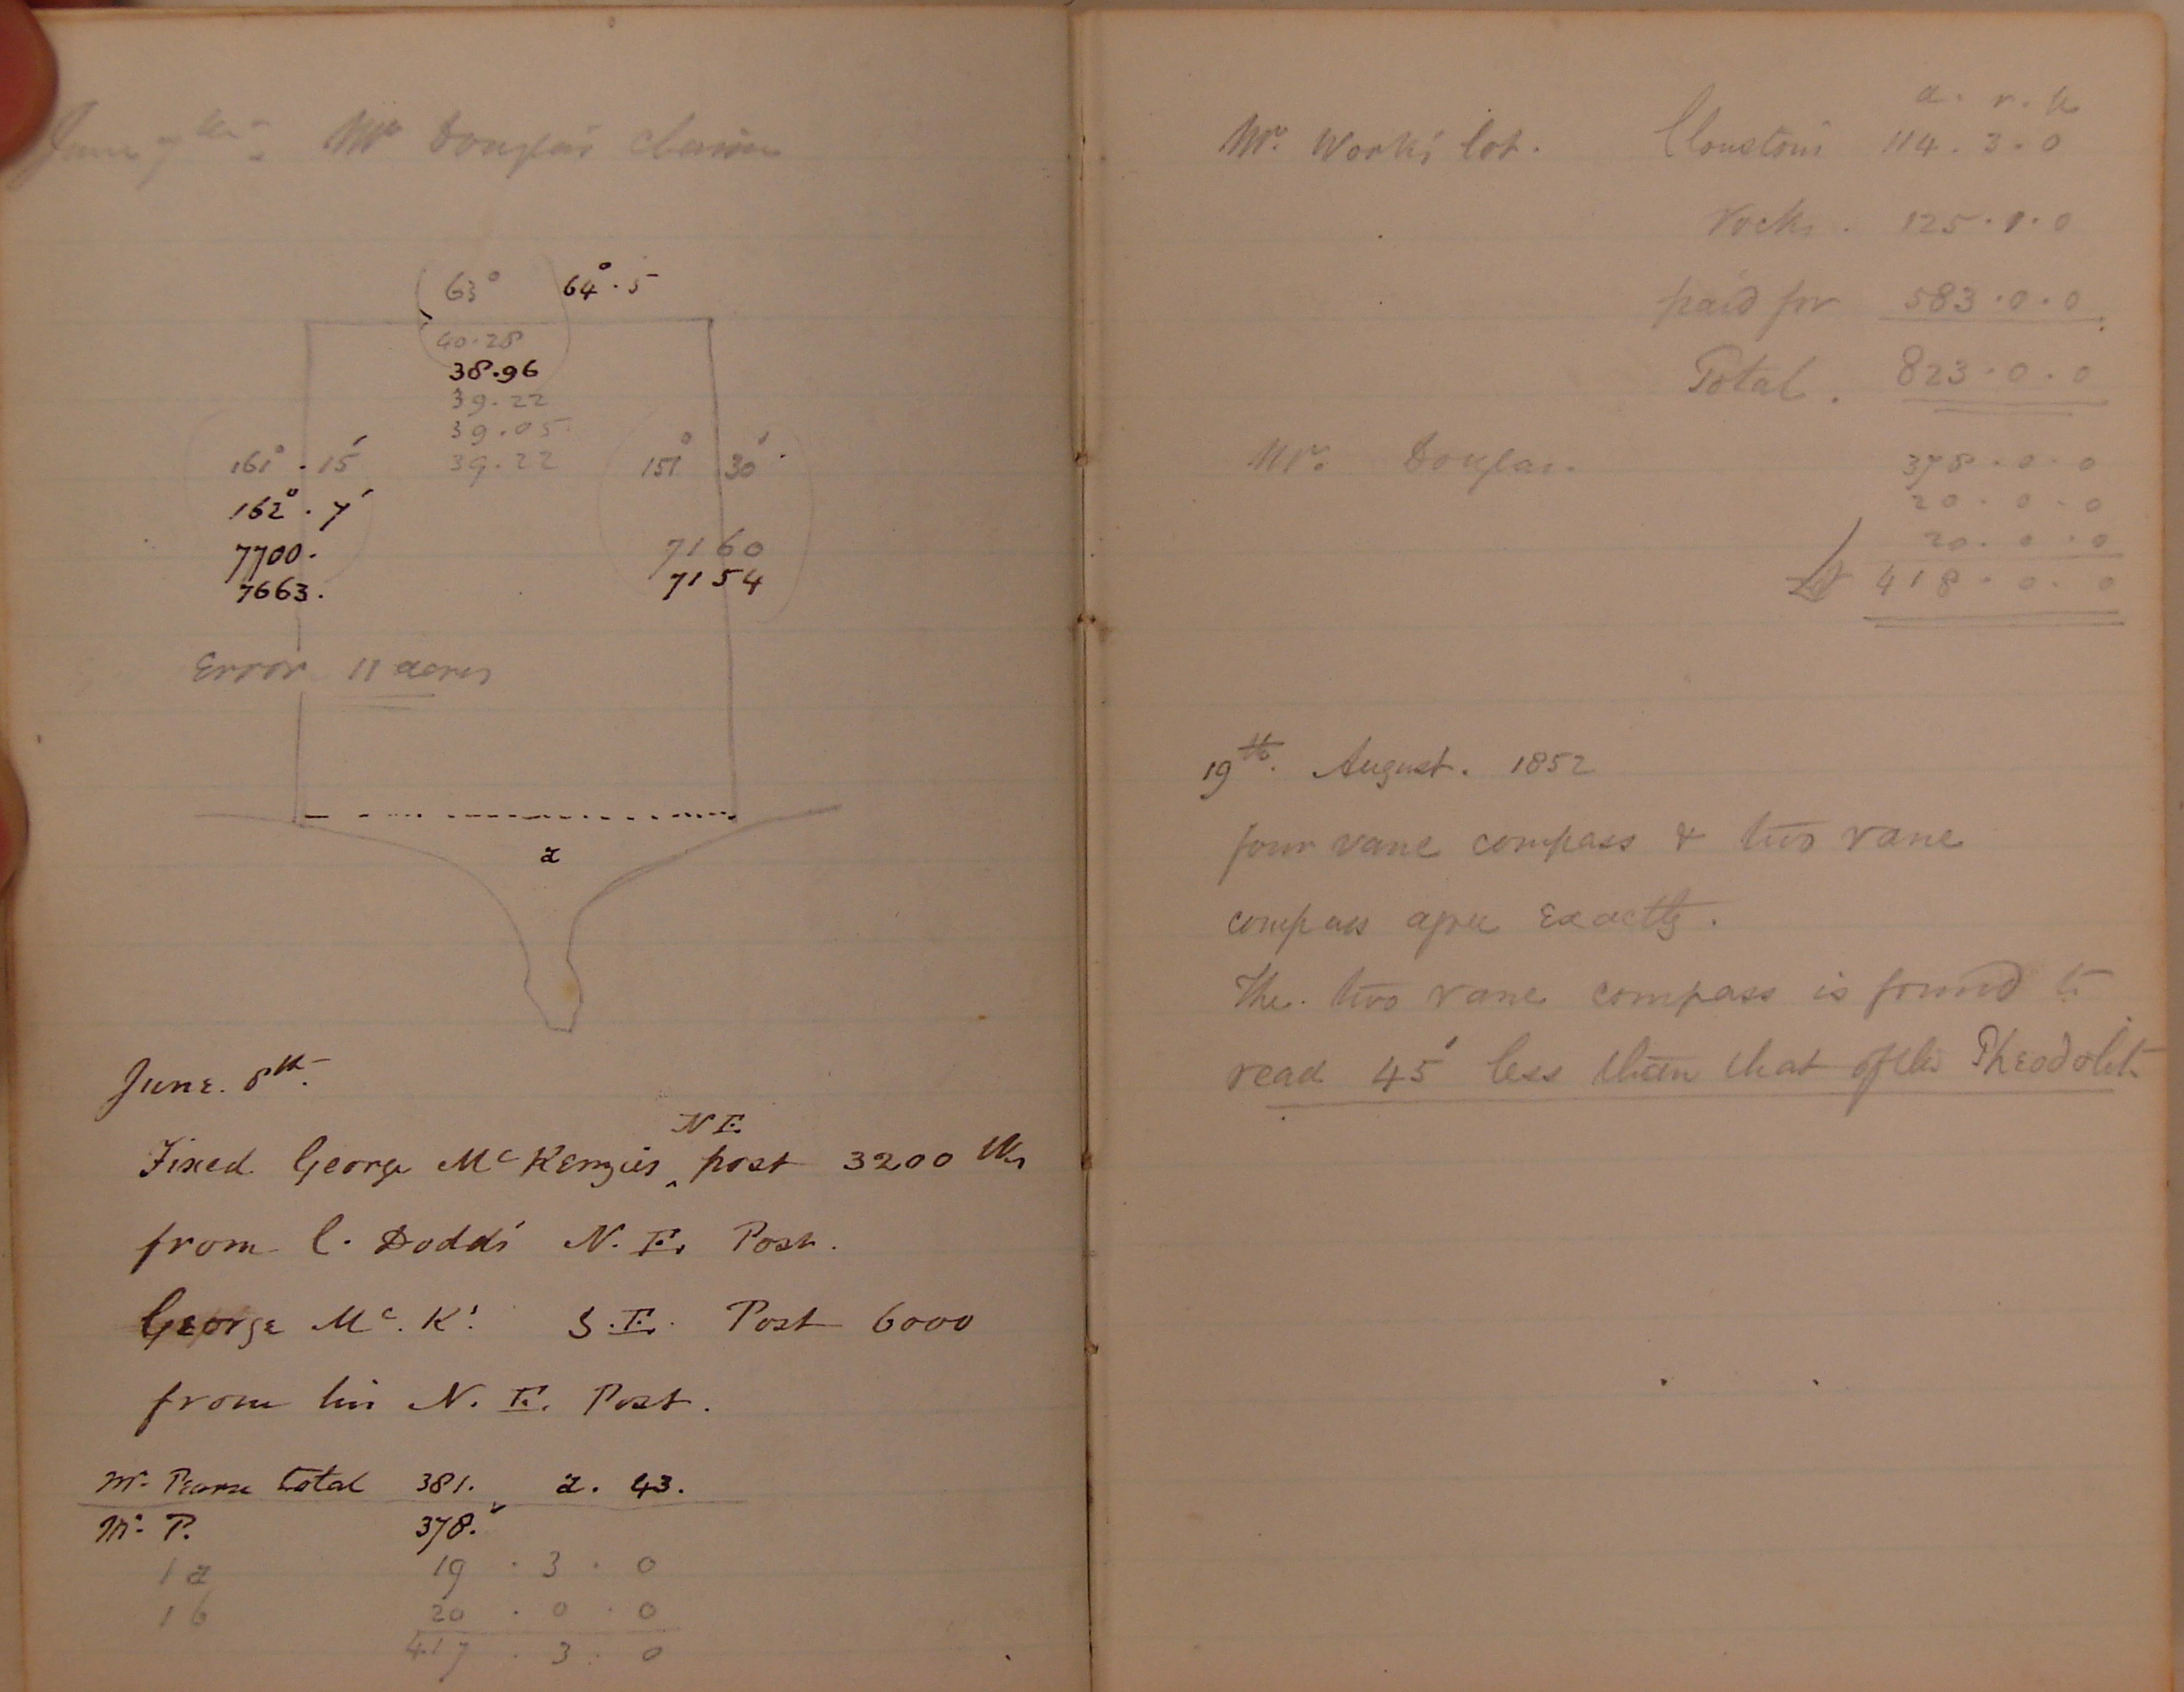 June 7th. Mr Douglas' claim
63° 64°.5
40.28
38.96
39.22
39.05
39.22
161°.15'
162°.7'
7700.
7663.
151° 30'
7160
7154
Error 11 acres
a
June 8th.
N E.
Fixed George McKenzie's ‸ post 3200 lks
from C. Dodd's N. E. Post.
George Mc. K's S. E. Post 6000
from his N. E. Post.
Mr. Pearse total 381. a. 43.
Mr. P. 378.
1 a 19 . 3 . 0
1 b 20 . 0 . 0
417 . 3 . 0
a. r. p
Mr. Work's lot. Clouston's 114. 3. 0
rocks. 125. 1. 0
paid for 583. 0. 0
Total. 823. 0. 0
Mr. Douglas. 378. 0. 0
20. 0. 0
20. 0. 0
418. 0. 0
19th. August. 1852
four vane compass & two vane
compass agree exactly.
The two vane compass is found to
read 45' less than that of the Theodolite